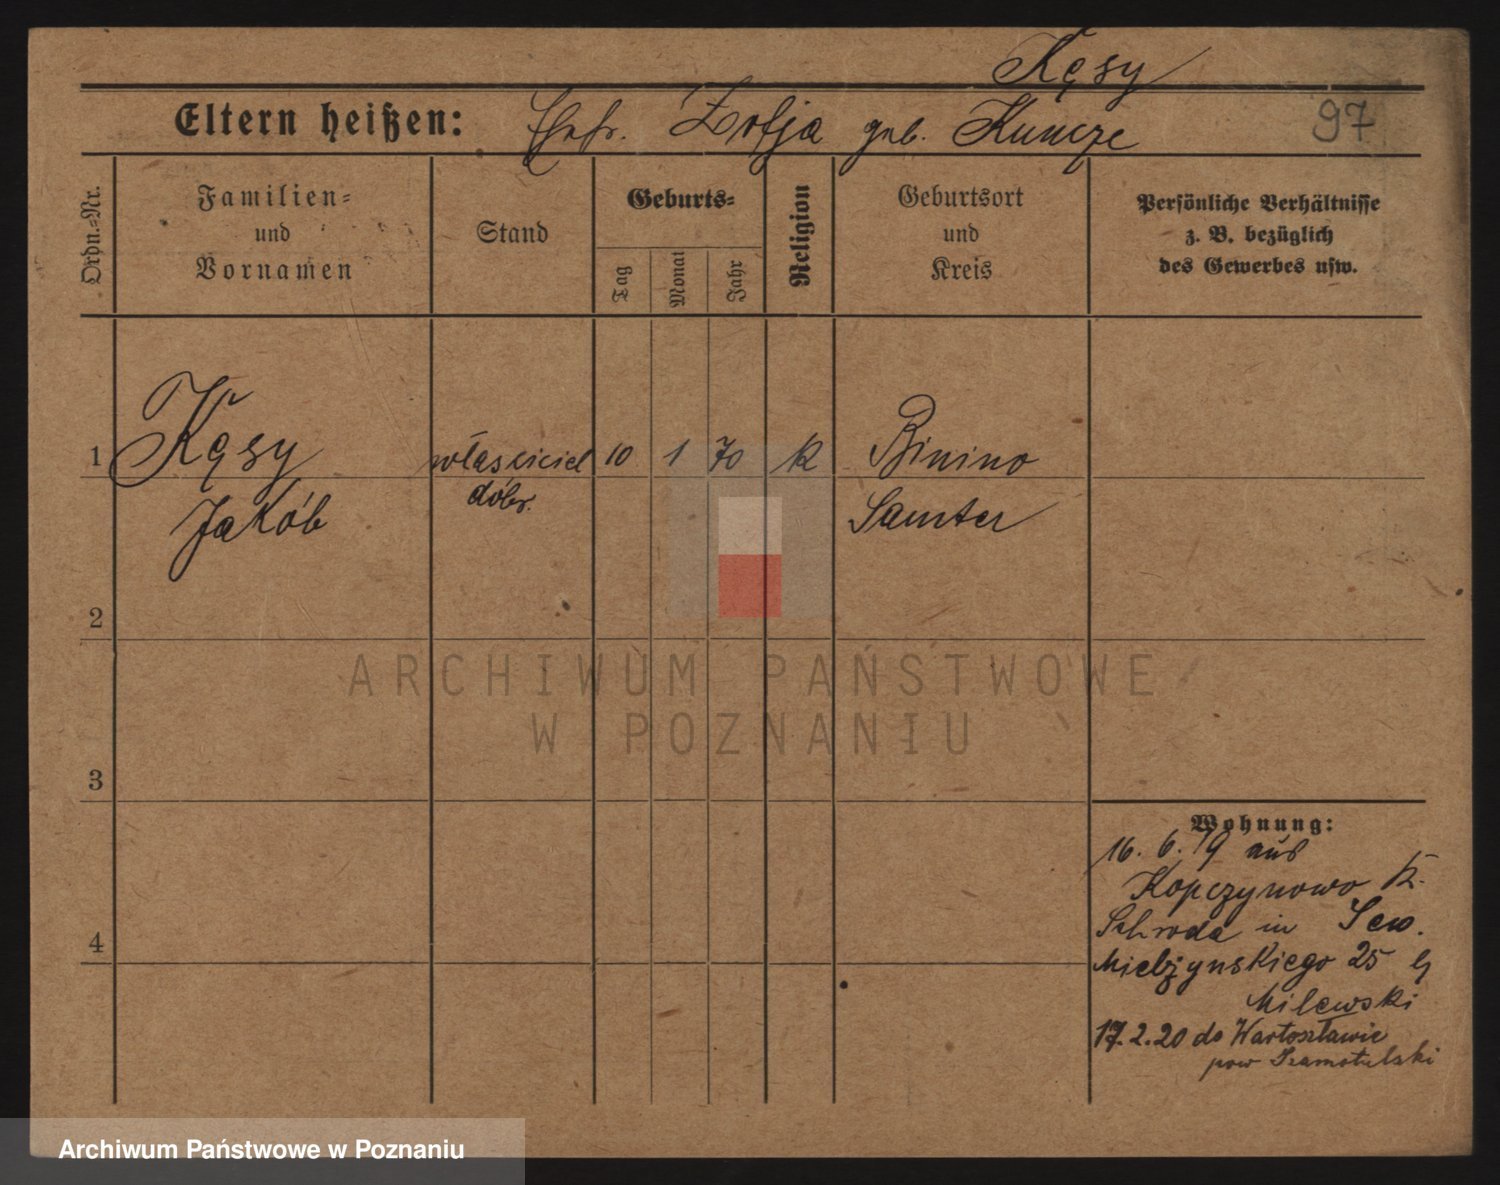 Kęsy
Eltern heißen: Ehefr. Zofja geb. Kuncze 97
Ordn.-Nr.
Familien- und Vornamen
Stand
Geburts-
Tag
Monat
Jahr
Religion
Geburtsort und Kreis
Persönliche Verhältnisse
z. B. bezüglich
des Gewerbes usw.
1 Kęsy właściciel 10 1 70 K Binino
Jakób dóbr. Samter
2
3
4
Wohnung:
16. 6. 19 aus
Kopczynowo K.
Schroda in Sew.
Mielżynskiego 25
Milewski
17.2.20 do Wartosławie
pow Szamotulski
ARCHIWUM PAŃSTWOWE
W POZNANIU
Archiwum Państwowe w Poznaniu